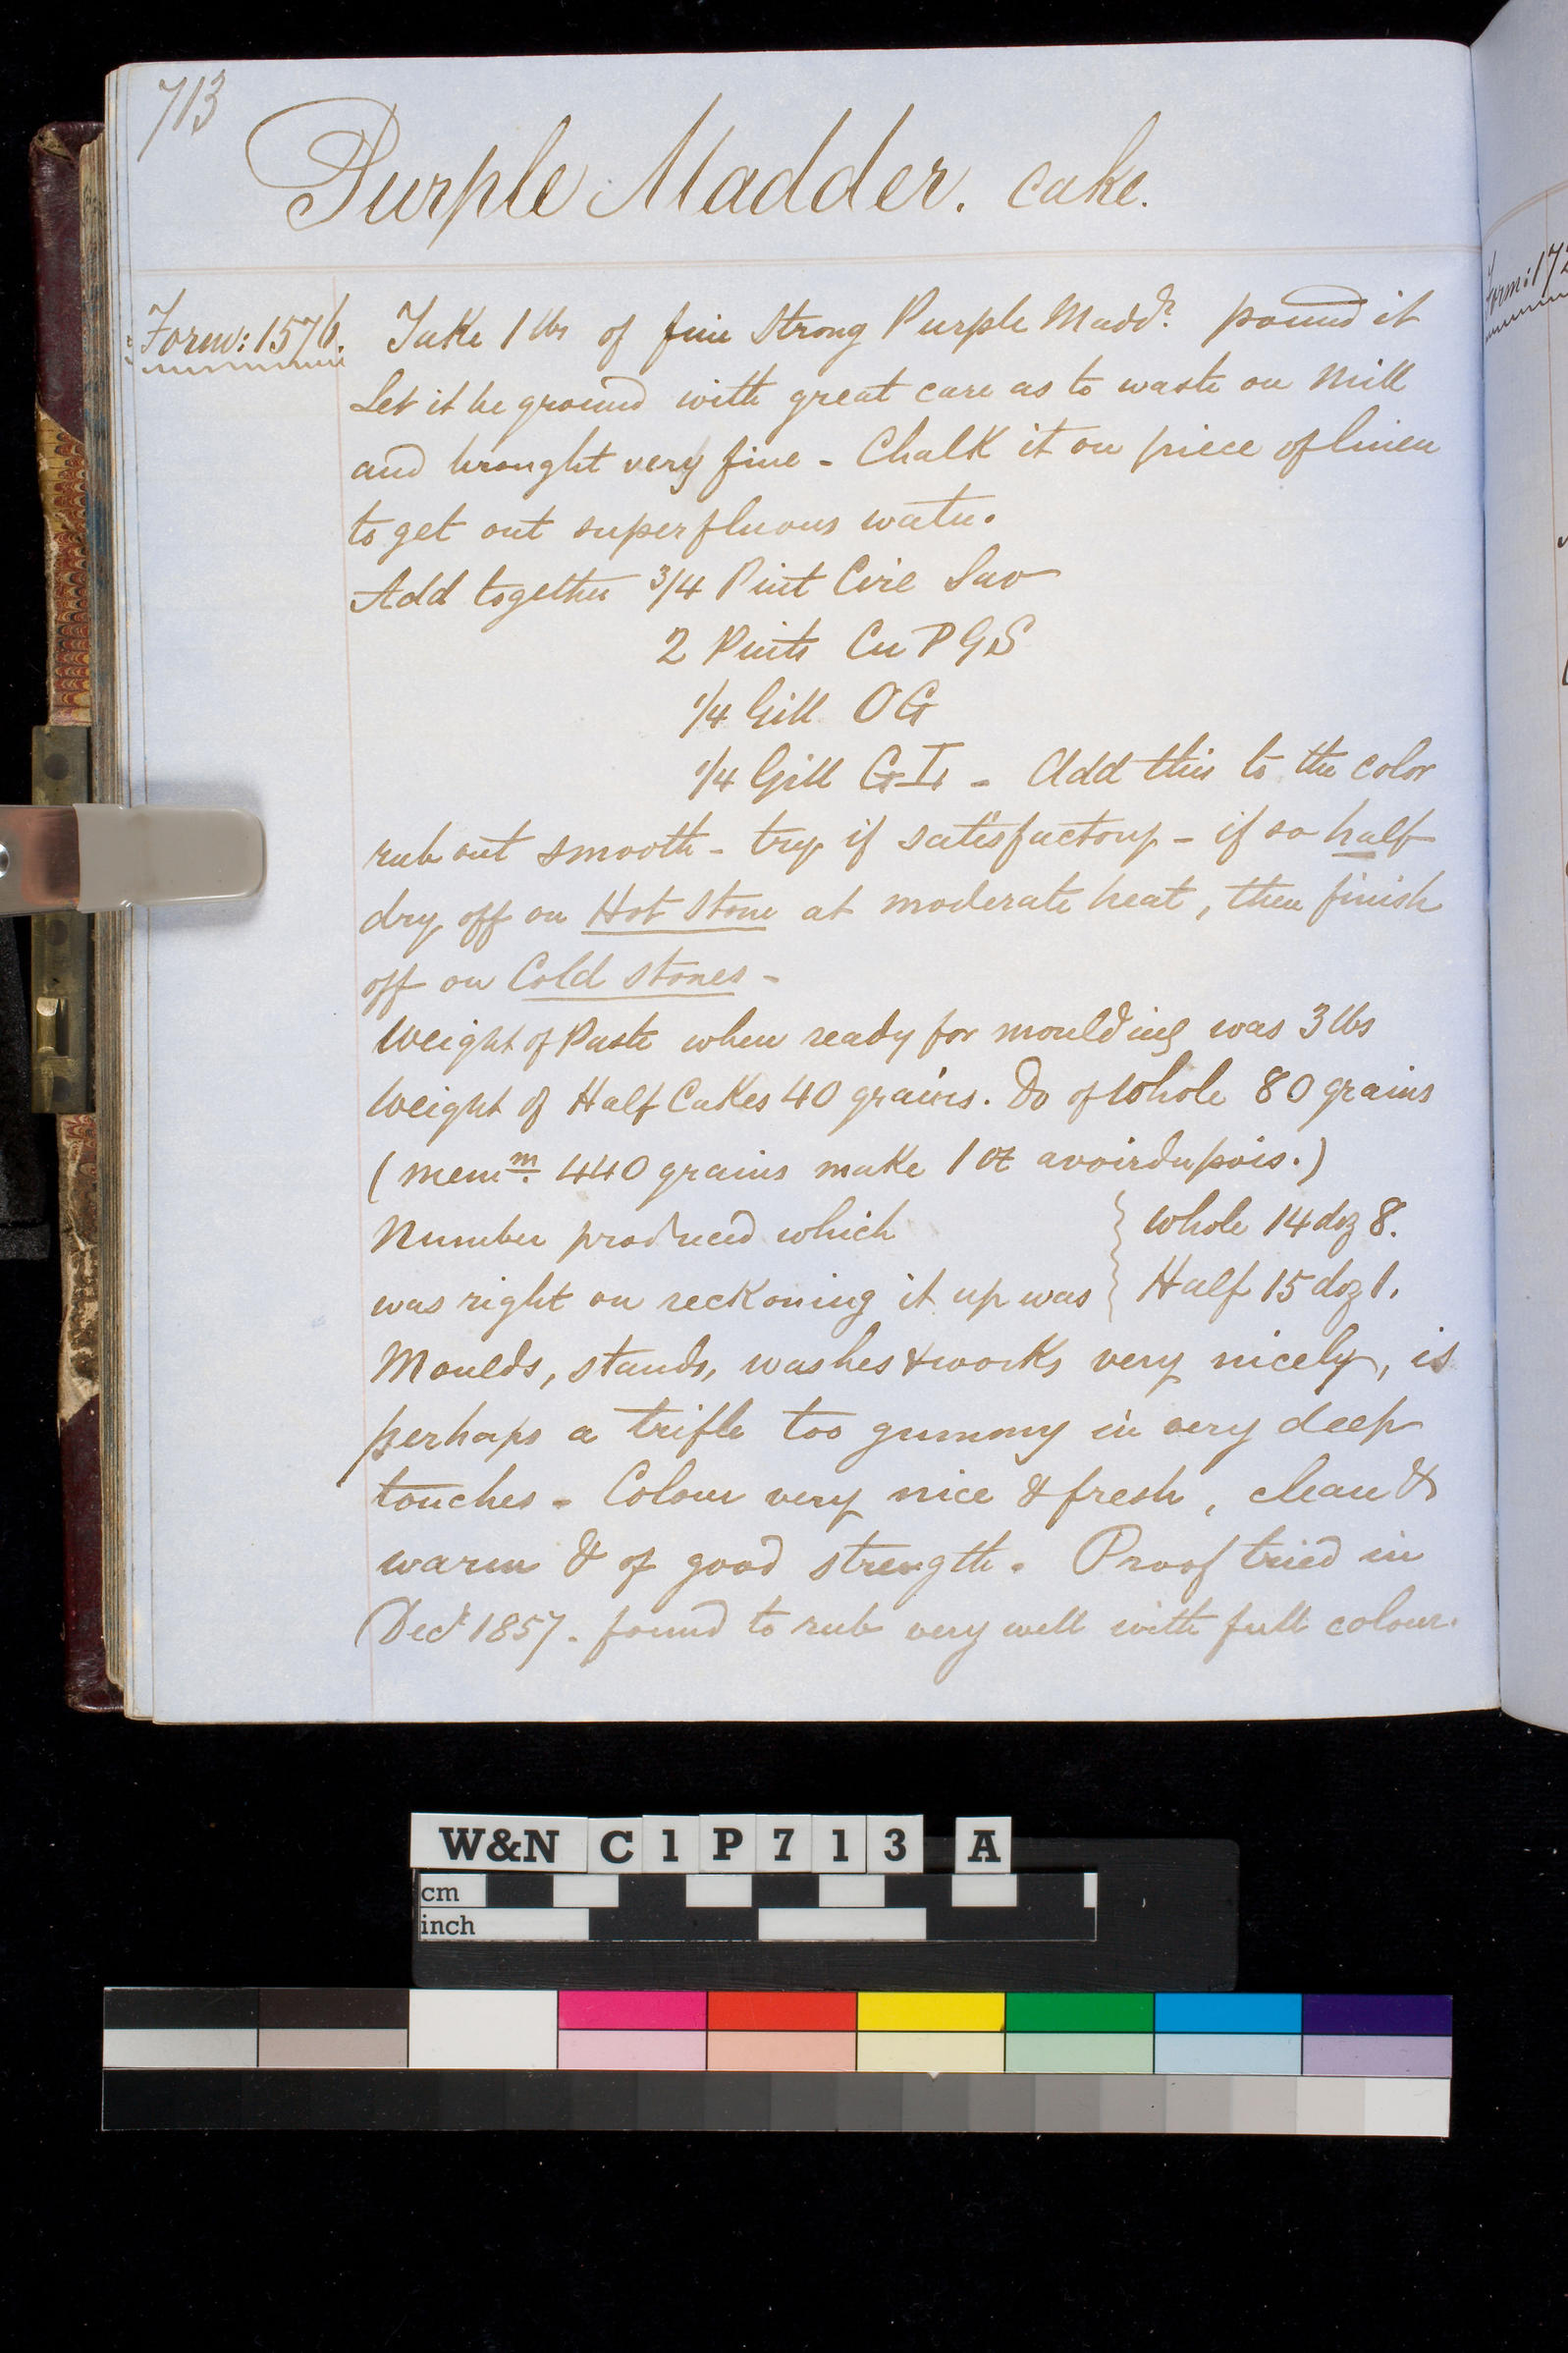 713
Purple Madder. cake.
Form: 1576. Take 1 lbs of fine Strong Purple Madd^r. pound it
Let it be ground with great care as to waste on Mill
and brought very fine - Chalk it on piece of linen
to get out superfluous water.
Add together 3/4 Pint Cire Sav
2 Pints Cu P G S
1/4 Gill O G
1/4 Gill G I - Add this to the color
rub out smooth - try if satisfactory - if so half
dry off on Hot Stone at moderate heat, then finish
off on Cold stones -
Weight of Paste when ready for moulding was 3 lbs
Weight of Half Cakes 40 grains. Do of Whole 80 grains
(mem^m. 440 grains make 1 oz avoirdupois.)
Number produced which } Whole 14 doz 8.
was right on reckoning it up was } Half 15 doz 1.
Moulds, stands, washes & works very nicely, is
perhaps a trifle too gummy in very deep
touches - Colour very nice & fresh, clean &
warm & of good strength. Proof tried in
Dec^r 1857 - found to rub very well with full colour.
Form: 17
W&N C 1 P 7 1 3 A
cm
inch